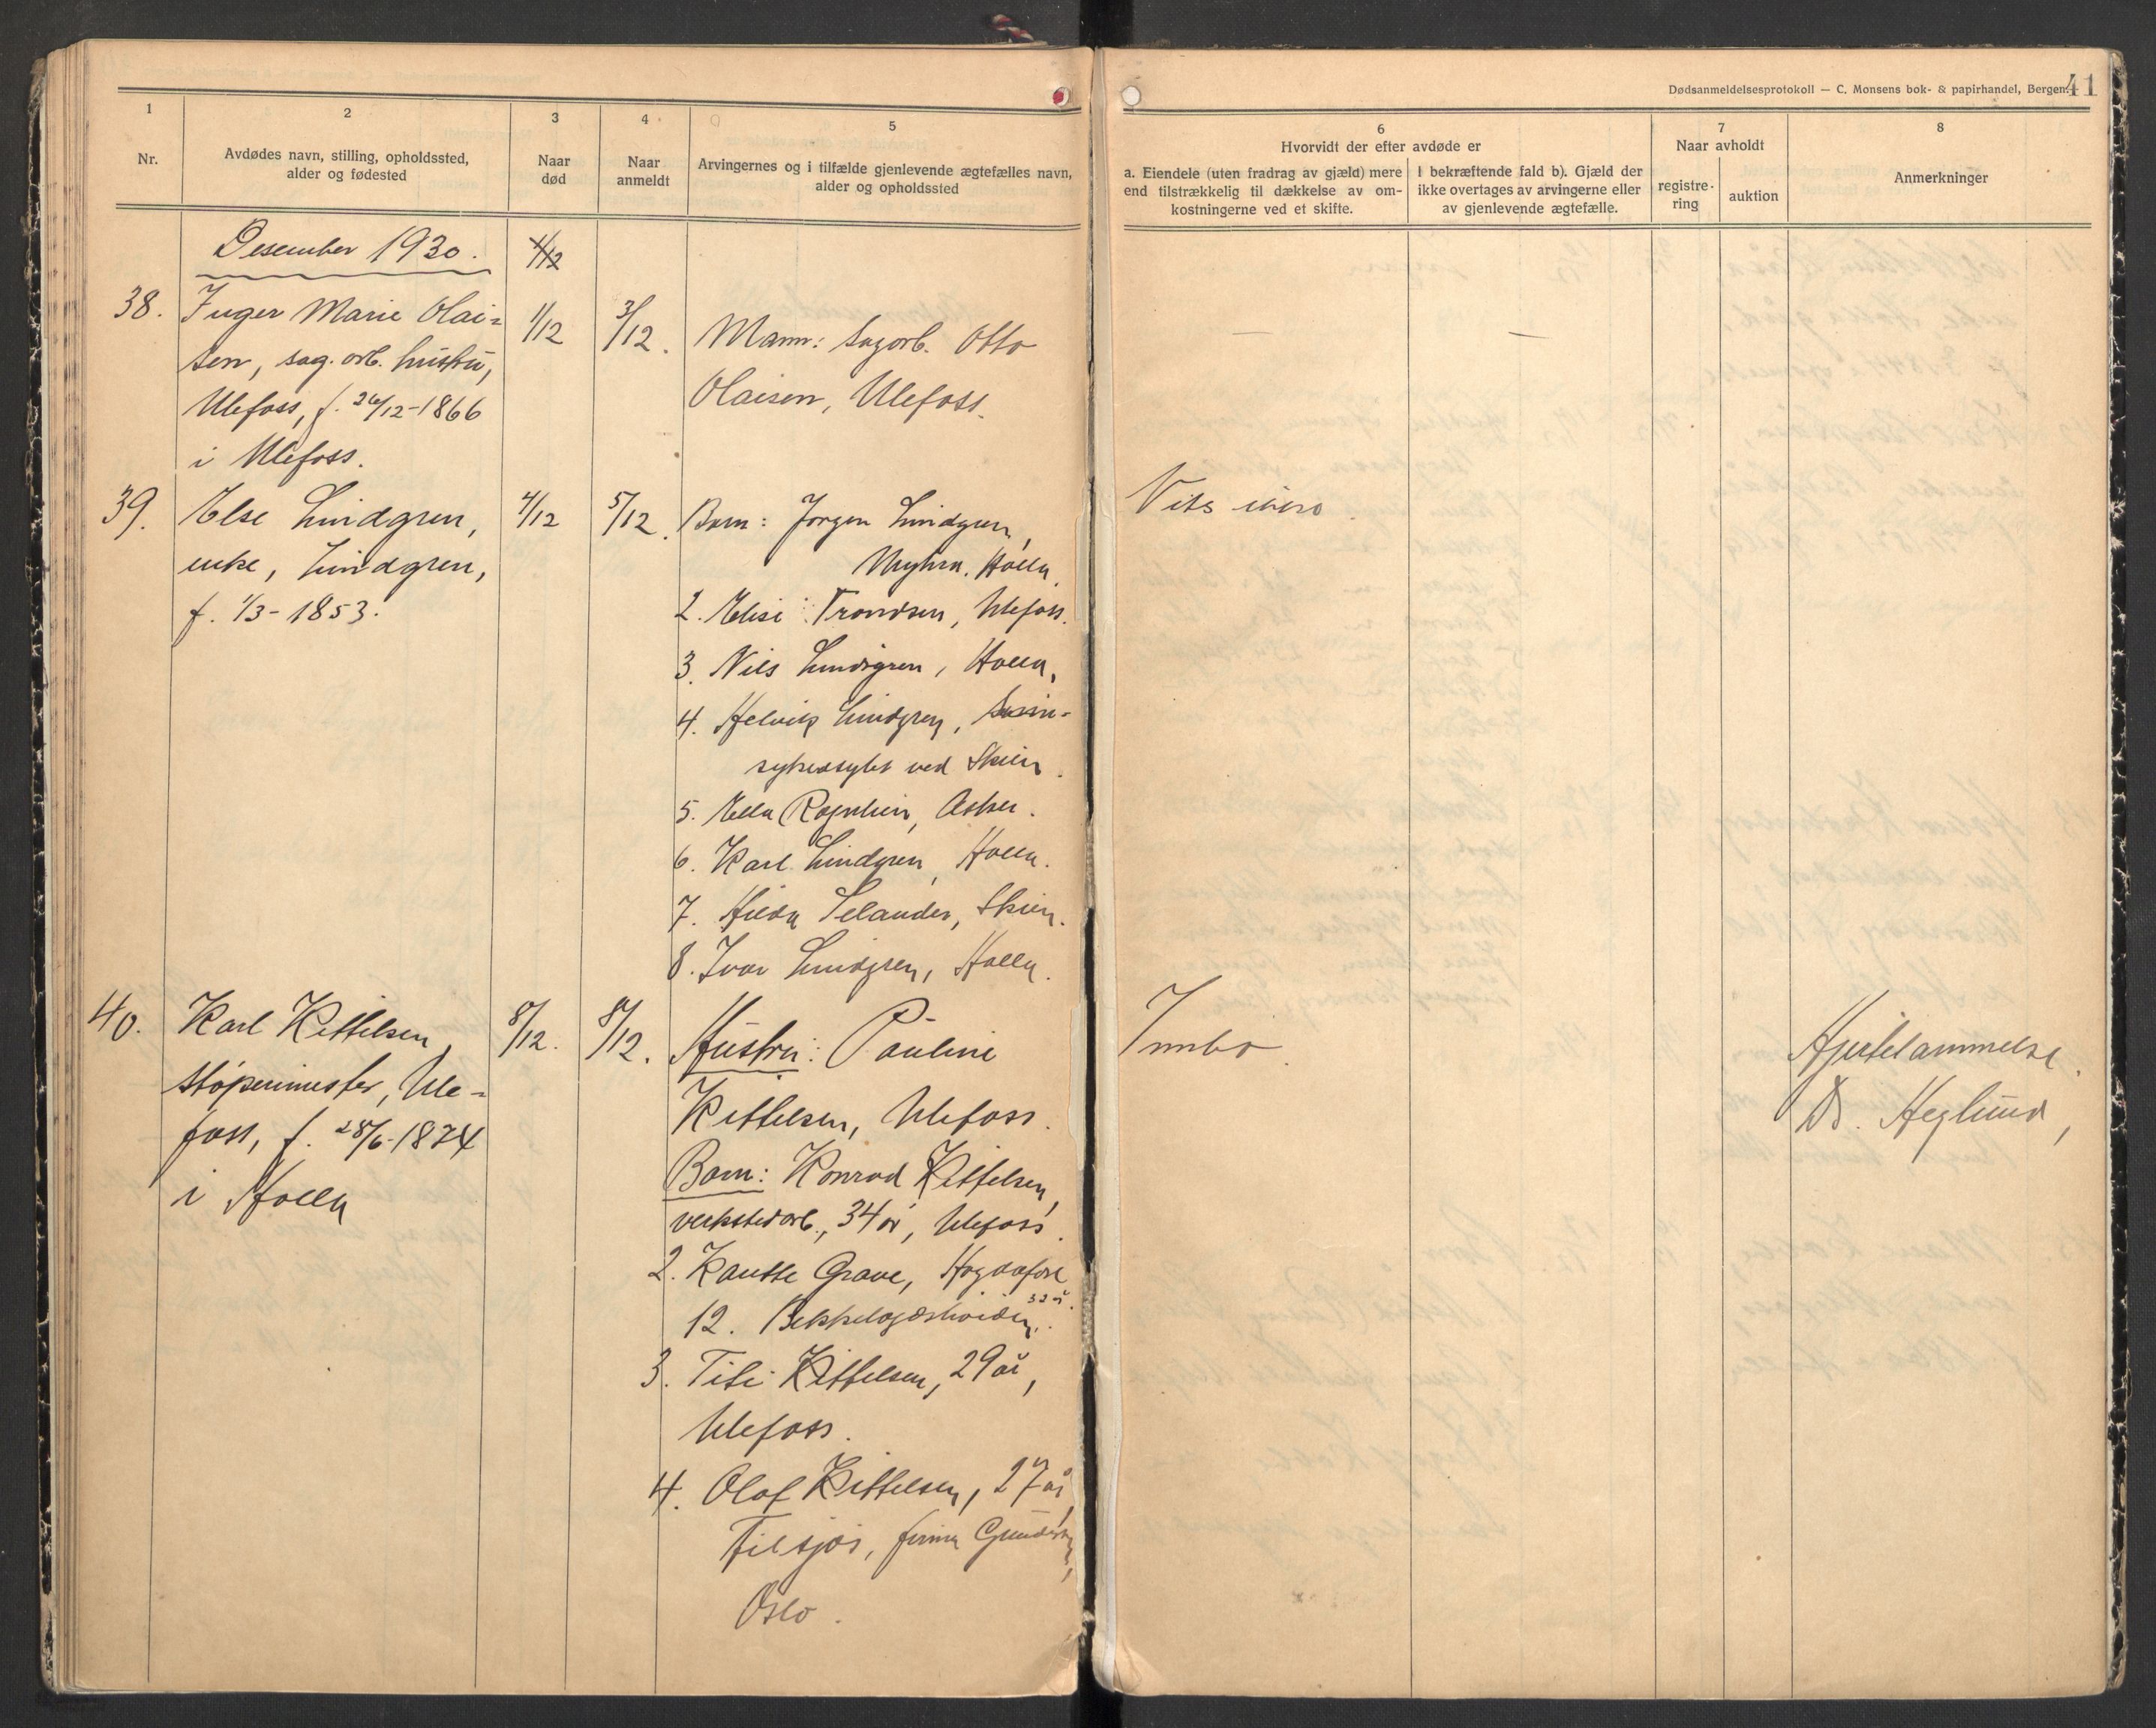 Dødsanmeldelsesprotokoll — C. Monsens bok- & papirhandel, Bergen.
41
1
Nr.
2
Avdødes navn, stilling, opholdssted,
alder og fødested
3
Naar
død
4
Naar
anmeldt
5
Arvingernes og i tilfælde gjenlevende ægtefælles navn,
alder og opholdssted
6
Hvorvidt der efter avdøde er
a. Eiendele (uten fradrag av gjæld) mere
end tilstrækkelig til dækkelse av om-
kostningerne ved et skifte.
I bekræftende fald b). Gjæld der
ikke overtages av arvingerne eller
av gjenlevende ægtefælle.
7
Naar avholdt
registre-
ring
auktion
8
Anmerkninger
Desember 1930.
1/12
38.
Inger Marie Olai-
sen, sag. arb. hustru,
Ulefoss, f. 26/12-1866
i Ulefoss.
1/12
3/12.
Mann: Sagarb. Otto
Olaisen, Ulefoss.
—
—
39.
Else Lindgren,
enke, Lindgren,
f. 1/3-1853.
4/12
5/12.
Barn: Jørgen Lindgren,
Holla.
2. Elise Trondsen, Ulefoss.
3. Nils Lindgren, Holla,
4. Helvig Lindgren, Sinn-
sykeasylet ved Skien.
5. Ella Asker.
6. Karl Lindgren, Holla.
7. Hilda Selander, Skien.
8. Ivar Lindgren, Holla.
Vites
40.
Karl Kittelsen,
støperimester, Ule-
foss, f. 28/6-1874
i Holla
8/12.
8/12.
Hustru: Pauline
Kittelsen, Ulefoss.
Barn: Konrad Kittelsen,
verkstedarb., 34 år, Ulefoss.
2. Grave,
32 år.
12. Bekkelagshøiden.
3. Kittelsen, 29 år,
Ulefoss.
4. Olaf Kittelsen, 27 år,
firma
Oslo.
Innbo.
Hjertelammelse.
Dr. Heglund,